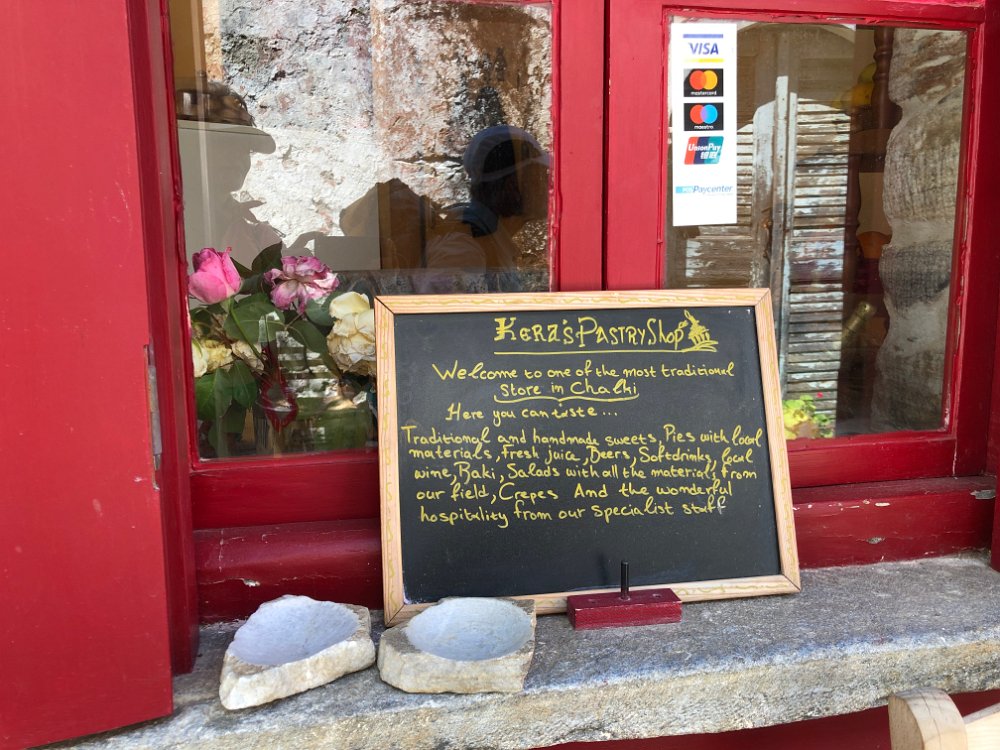 VISA
mastercard
maestro
UnionPay
银联
Paycenter
Kera's Pastry Shop
Welcome to one of the most traditional
Store in Chalki
Here you can taste...
Traditional and handmade sweets, Pies with local
materials, Fresh juice, Beers, Softdrinks, local
wine, Raki, Salads with all the materials from
our field, Crepes And the wonderful
hospitality from our specialist staff